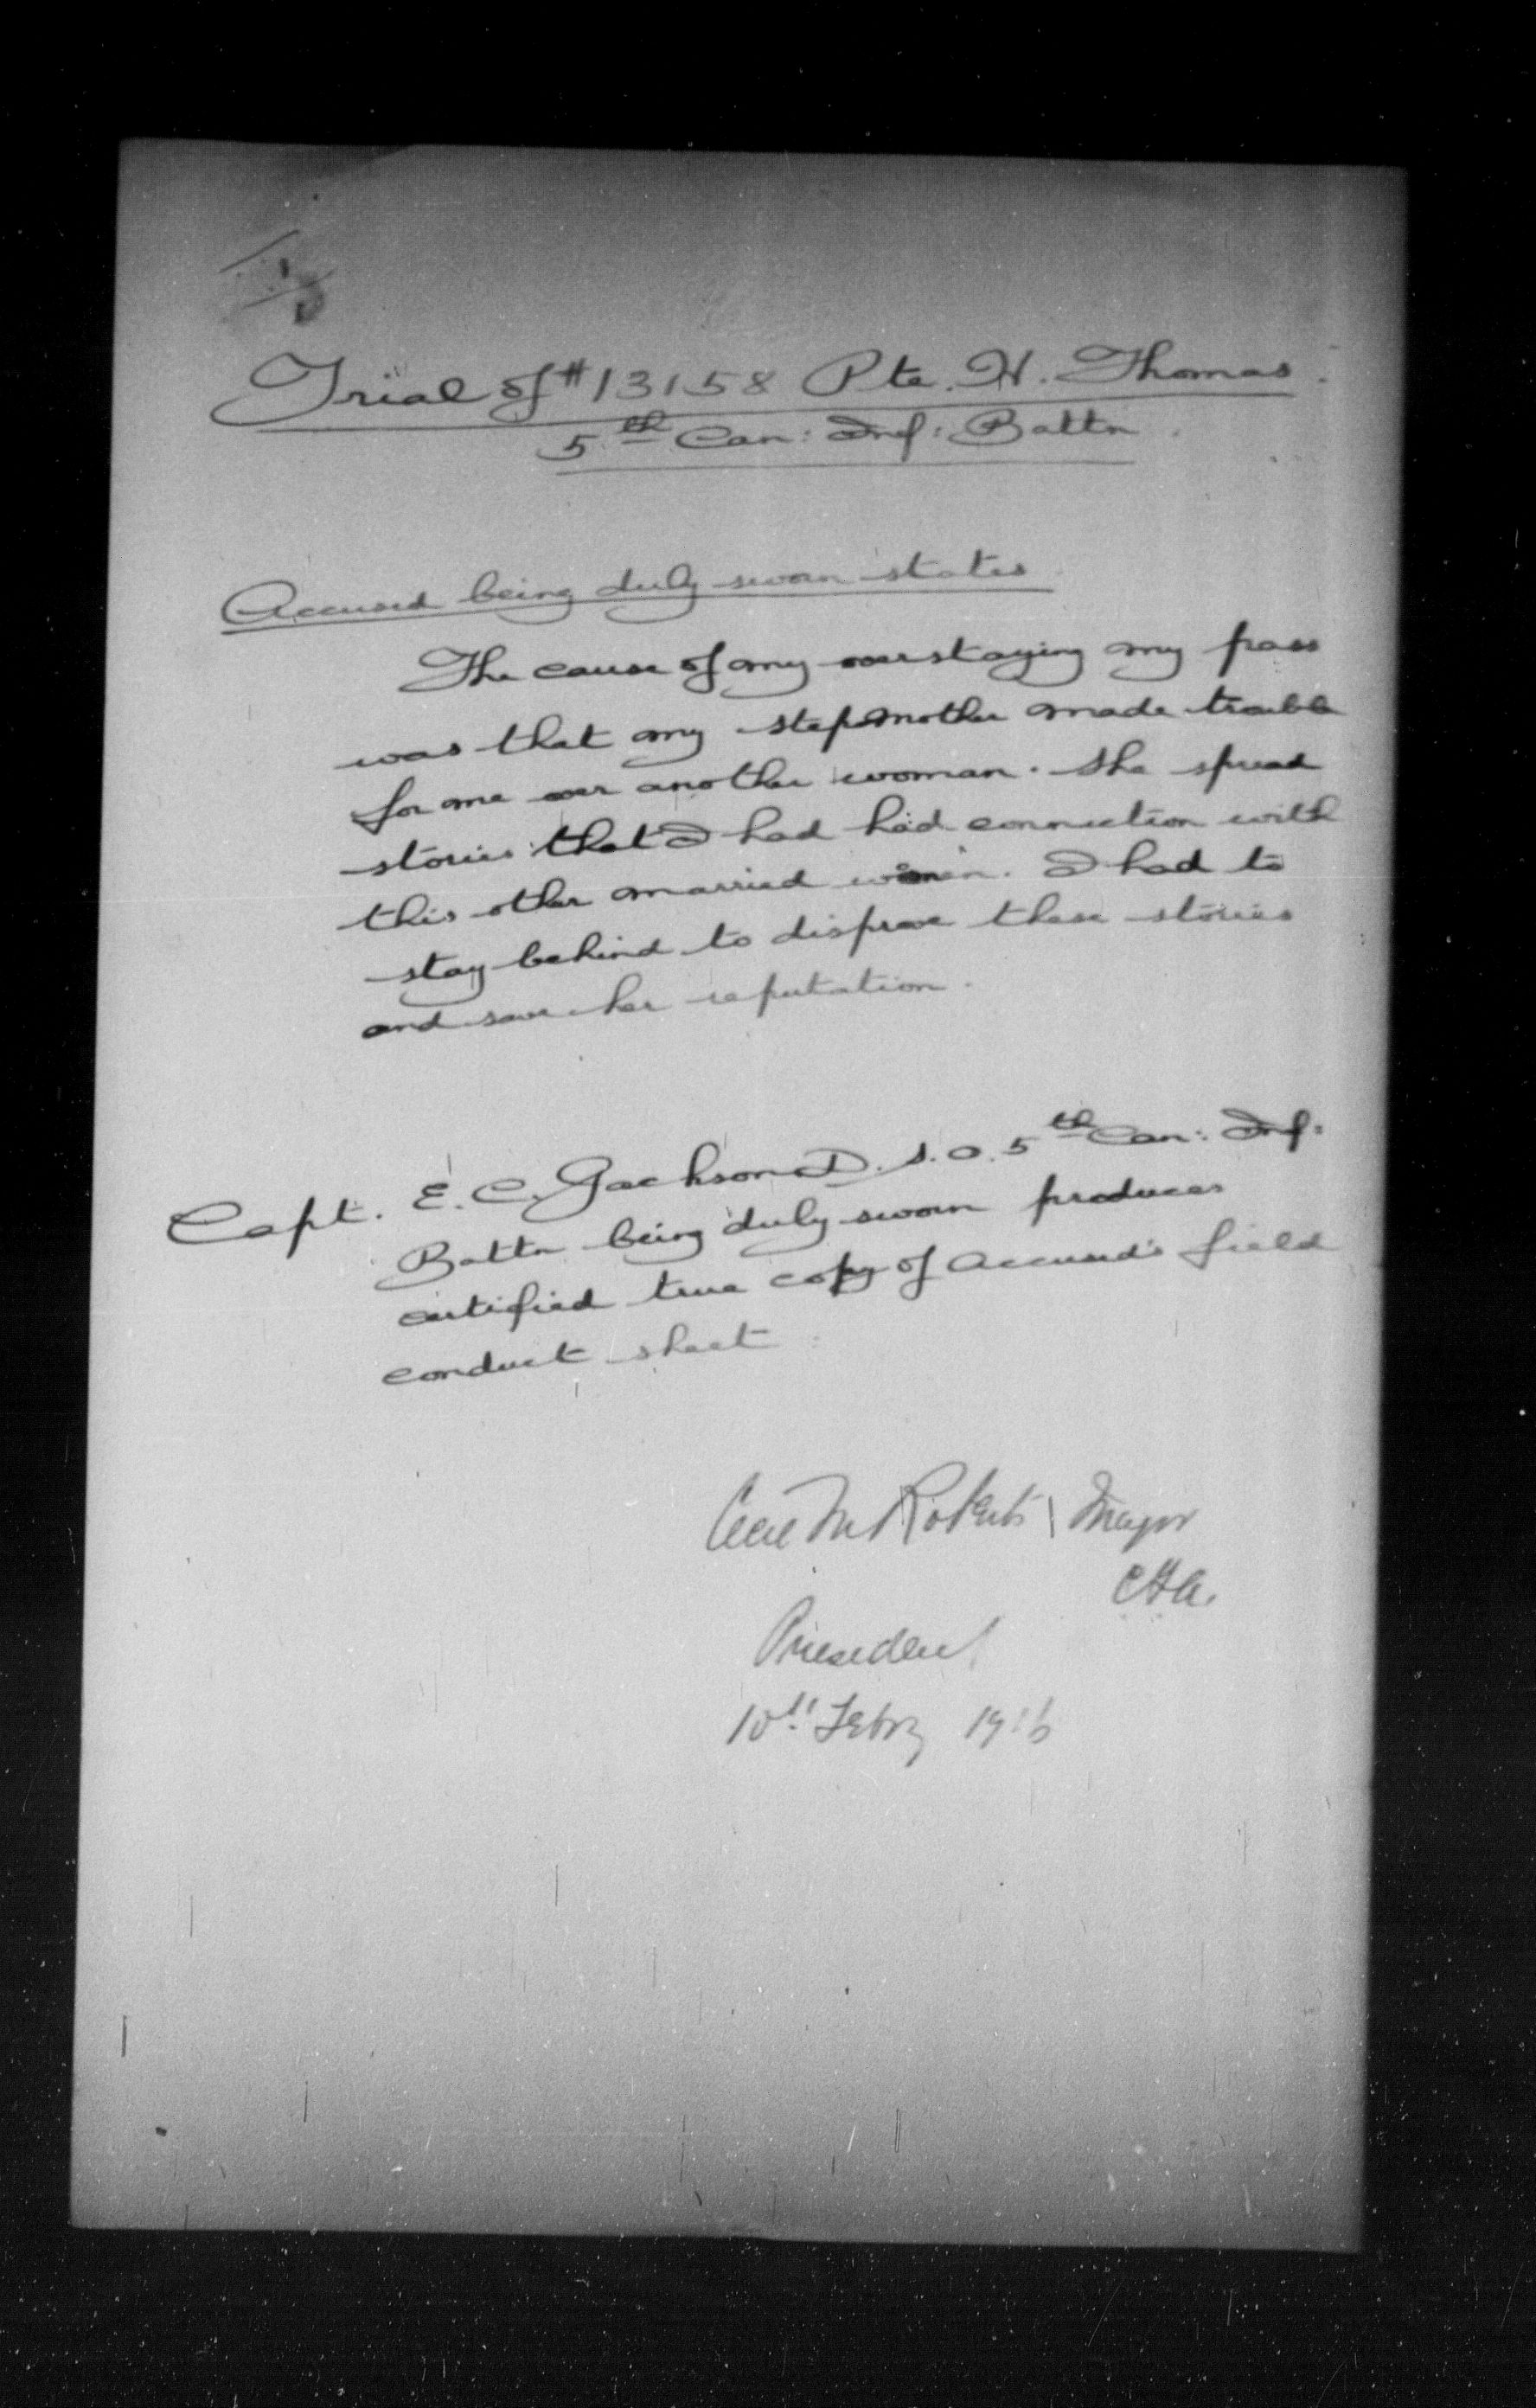 Trial of #13158 Pte. H. Thomas.
5th Can: Inf: Battn.
Accused being duly sworn states
The cause of my overstaying my pass
was that my stepmother made trouble
for me over another woman. She spread
stories that I had had connection with
this other married woman. I had to
stay behind to disprove these stories
and save her reputation.
Capt. E. C. Jackson D.S.O. 5th Can: Inf:
Battn being duly sworn produces
certified true copy of accused's field
conduct sheet.
Cecil M Roberts Major
CFA.
President
10th Febry 1916